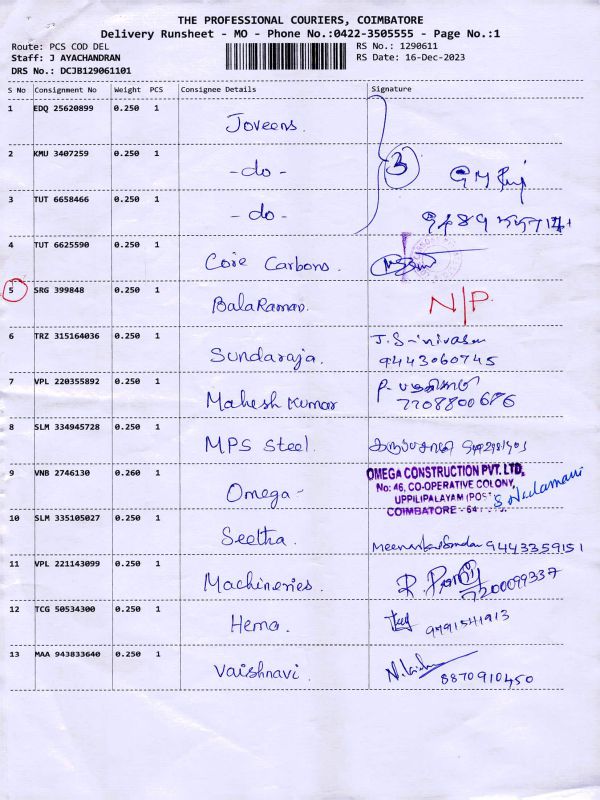 THE PROFESSIONAL COURIERS, COIMBATORE
Delivery Runsheet - MO - Phone No.:0422-3505555 - Page No.:1
Route: PCS COD DEL
Staff: J AYACHANDRAN
DRS No.: DCJB129061101
RS No.: 1290611
RS Date: 16-Dec-2023
S No Consignment No Weight PCS Consignee Details Signature
1 EDQ 25620899 0.250 1 Joveens.
2 KMU 3407259 0.250 1 -do-
3
3 TUT 6658466 0.250 1 -do-
4 TUT 6625590 0.250 1 Core Carbons.
5 SRG 399848 0.250 1 BalaRaman. N/P.
6 TRZ 315164036 0.250 1 Sundaraja. J.Srinivasan
9443060745
7 VPL 220355892 0.250 1 Mahesh Kumar P.
7708800686
8 SLM 334945728 0.250 1 MPS Steel.
9 VNB 2746130 0.260 1 Omega-
OMEGA CONSTRUCTION PVT. LTD,
No: 46, CO-OPERATIVE COLONY,
UPPILIPALAYAM (POST
COIMBATORE - 64
10 SLM 335105027 0.250 1 Seetha. 9443359151
11 VPL 221143099 0.250 1 Machineries. R.
7200099337
12 TCG 50534300 0.250 1 Hema. 9791541913
13 MAA 943833640 0.250 1 Vaishnavi.
8870910450